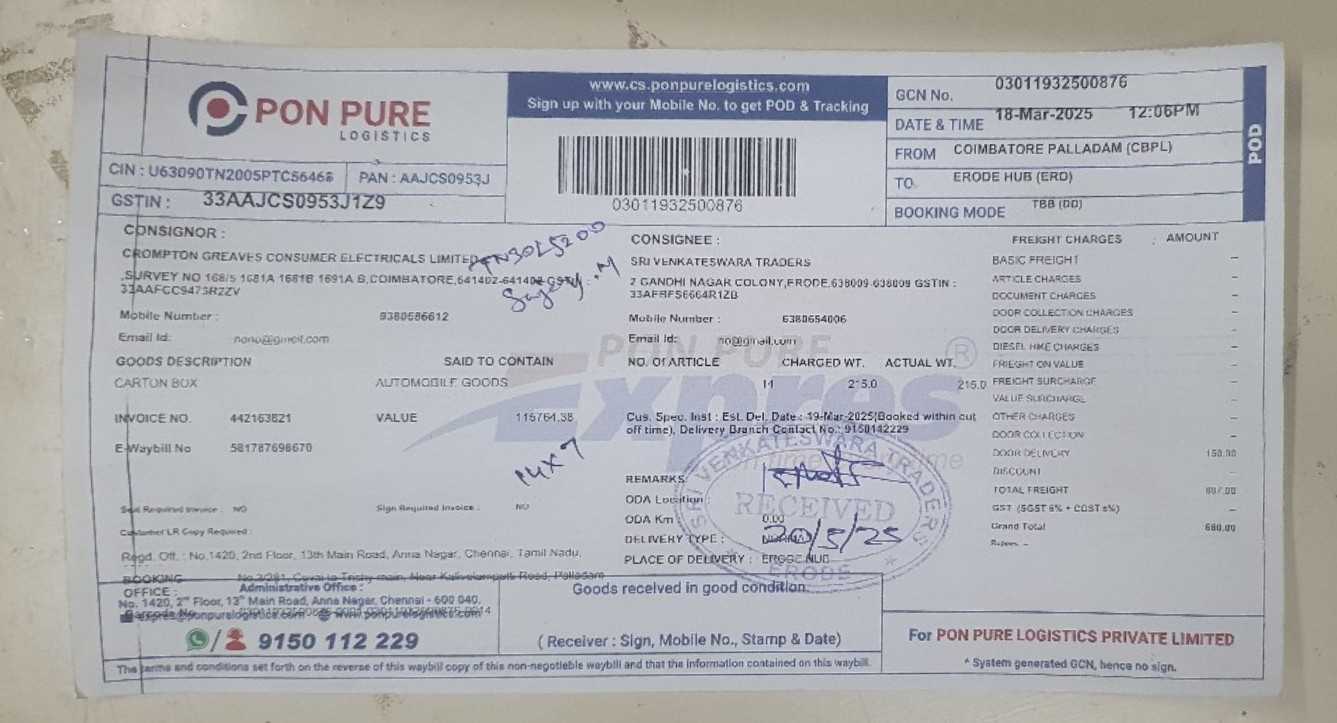 PON PURE
LOGISTICS
www.cs.ponpurelogistics.com
Sign up with your Mobile No. to get POD & Tracking
03011932500876
GCN No. 03011932500876
DATE & TIME 18-Mar-2025 12:06PM
FROM COIMBATORE PALLADAM (CBPL)
TO ERODE HUB (ERD)
BOOKING MODE TBB (DD)
POD
CIN : U63090TN2005PTC56468 PAN : AAJCS0953J
GSTIN : 33AAJCS0953J1Z9
CONSIGNOR :
CROMPTON GREAVES CONSUMER ELECTRICALS LIMITED
,SURVEY NO 168/5 1681A 1681B 1691A B,COIMBATORE,641402-641402 GSTIN :
Mobile Number : 9380586612
Email Id:
GOODS DESCRIPTION SAID TO CONTAIN
CARTON BOX AUTOMOBILE GOODS
INVOICE NO. 442163821 VALUE 115764.38
E-Waybill No 581787698670
14x7
Seal Required Invoice : NO Sign Required Invoice : NO
Customer LR Copy Required :
Regd. Off. : No.1420, 2nd Floor, 13th Main Road, Anna Nagar, Chennai, Tamil Nadu,
BOOKING OFFICE :
Administrative Office :
No. 1420, 2nd Floor, 13th Main Road, Anna Nagar, Chennai - 600 040,
9150 112 229
The terms and conditions set forth on the reverse of this waybill copy of this non-negotieble waybill and that the information contained on this waybill.
CONSIGNEE :
SRI VENKATESWARA TRADERS
2 GANDHI NAGAR COLONY,ERODE,638009-638009 GSTIN :
Mobile Number : 6380654006
Email Id: no@gmail.com
PON PURE
Expres
NO. Of ARTICLE CHARGED WT. ACTUAL WT.
14 215.0 215.0
Cus. Spec. Inst : Est. Del. Date : 19-Mar-2025(Booked within cut
off time), Delivery Branch Contact No.: 9150142229
REMARKS:
ODA Location :
ODA Km : 0.00
DELIVERY TYPE :
PLACE OF DELIVERY : ERODE HUB
SRI VENKATESWARA TRADERS
RECEIVED
20/5/25
ERODE
Goods received in good condition.
( Receiver : Sign, Mobile No., Stamp & Date)
FREIGHT CHARGES : AMOUNT
BASIC FREIGHT –
ARTICLE CHARGES –
DOCUMENT CHARGES –
DOOR COLLECTION CHARGES –
DOOR DELIVERY CHARGES –
DIESEL HIKE CHARGES –
FRIEGHT ON VALUE –
FREIGHT SURCHARGE –
VALUE SURCHARGE –
OTHER CHARGES –
DOOR COLLECTION –
DOOR DELIVERY 150.00
DISCOUNT
TOTAL FREIGHT
Grand Total 680.00
Rupees –
For PON PURE LOGISTICS PRIVATE LIMITED
^ System generated GCN, hence no sign.